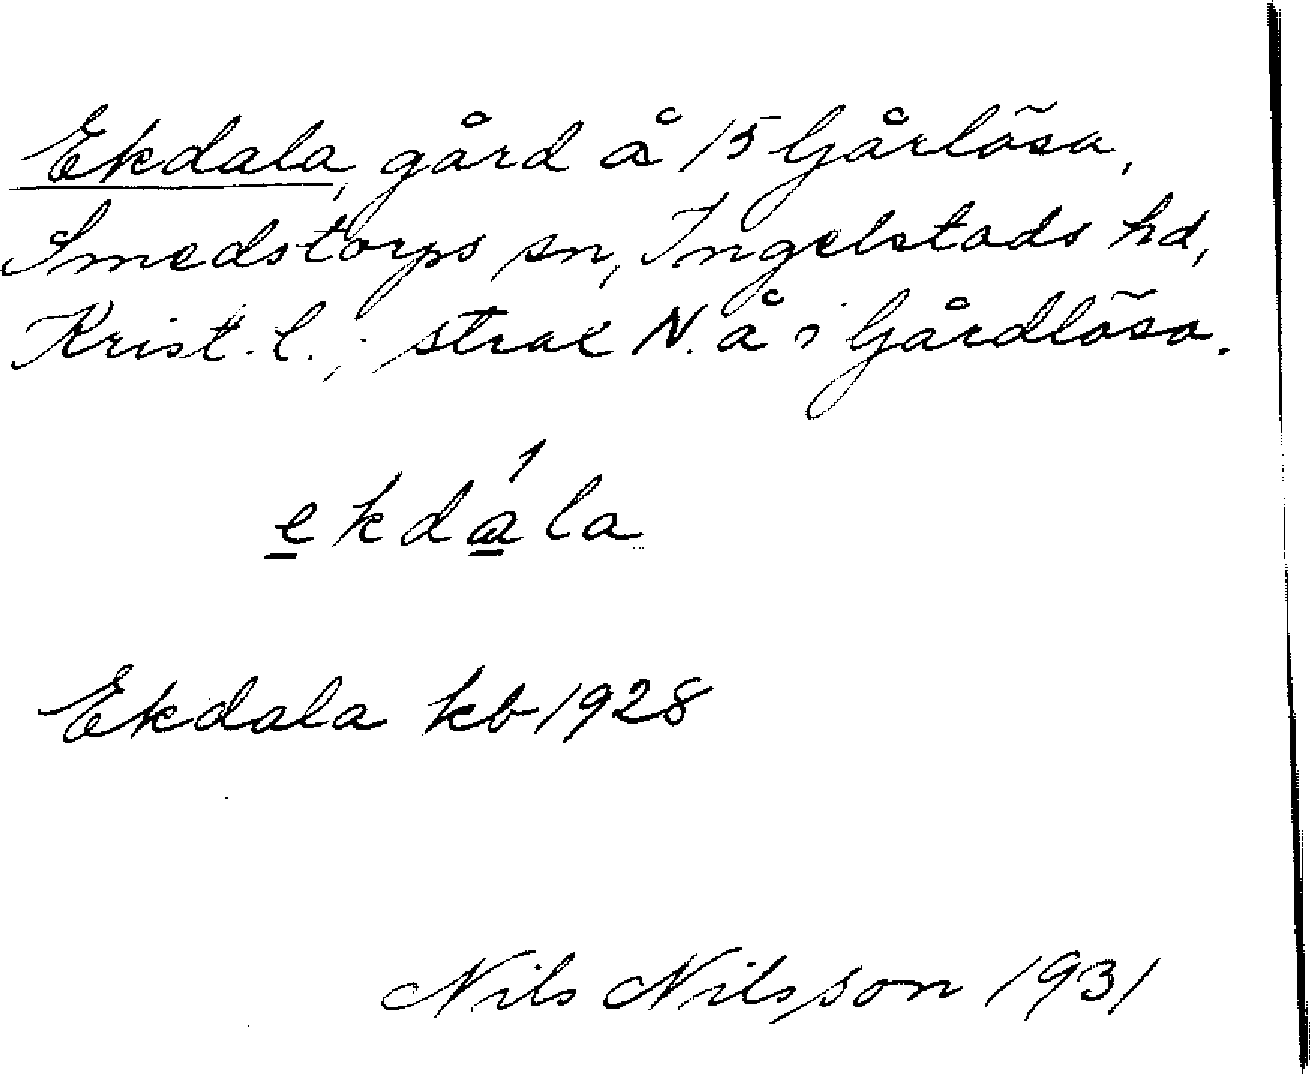 Ekdala, gård å 15 Gårlösa,
Smedstorps sn, Ingelstads hd,
Krist. l.; strax N. å i Gårdlösa.
ekdála
Ekdala kb 1928
Nils Nilsson 1931